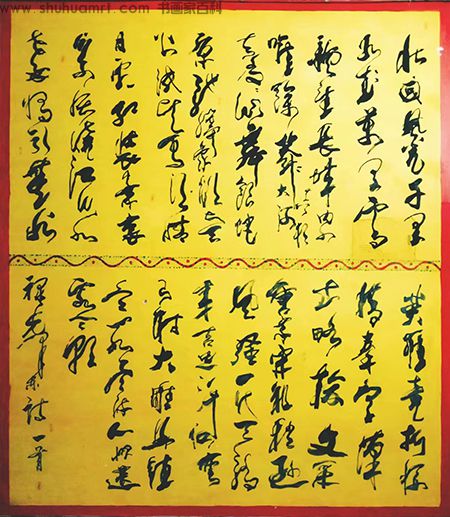 www.shuhuamrl.com 书画家百科
北国风光千里
冰封万里雪
飘望长城内外
惟馀莽莽大河
舞银蛇
原驰蜡象欲与
天公试比高须晴
日看红装素裹
分外妖娆江山如
此多娇引无数
英雄竞折腰惜
秦皇汉
武略输文采
唐宗宋祖稍逊
风骚一代天骄
成吉思汗只识弯
弓射大雕俱往
矣数风流人物还
看今朝
诗一首